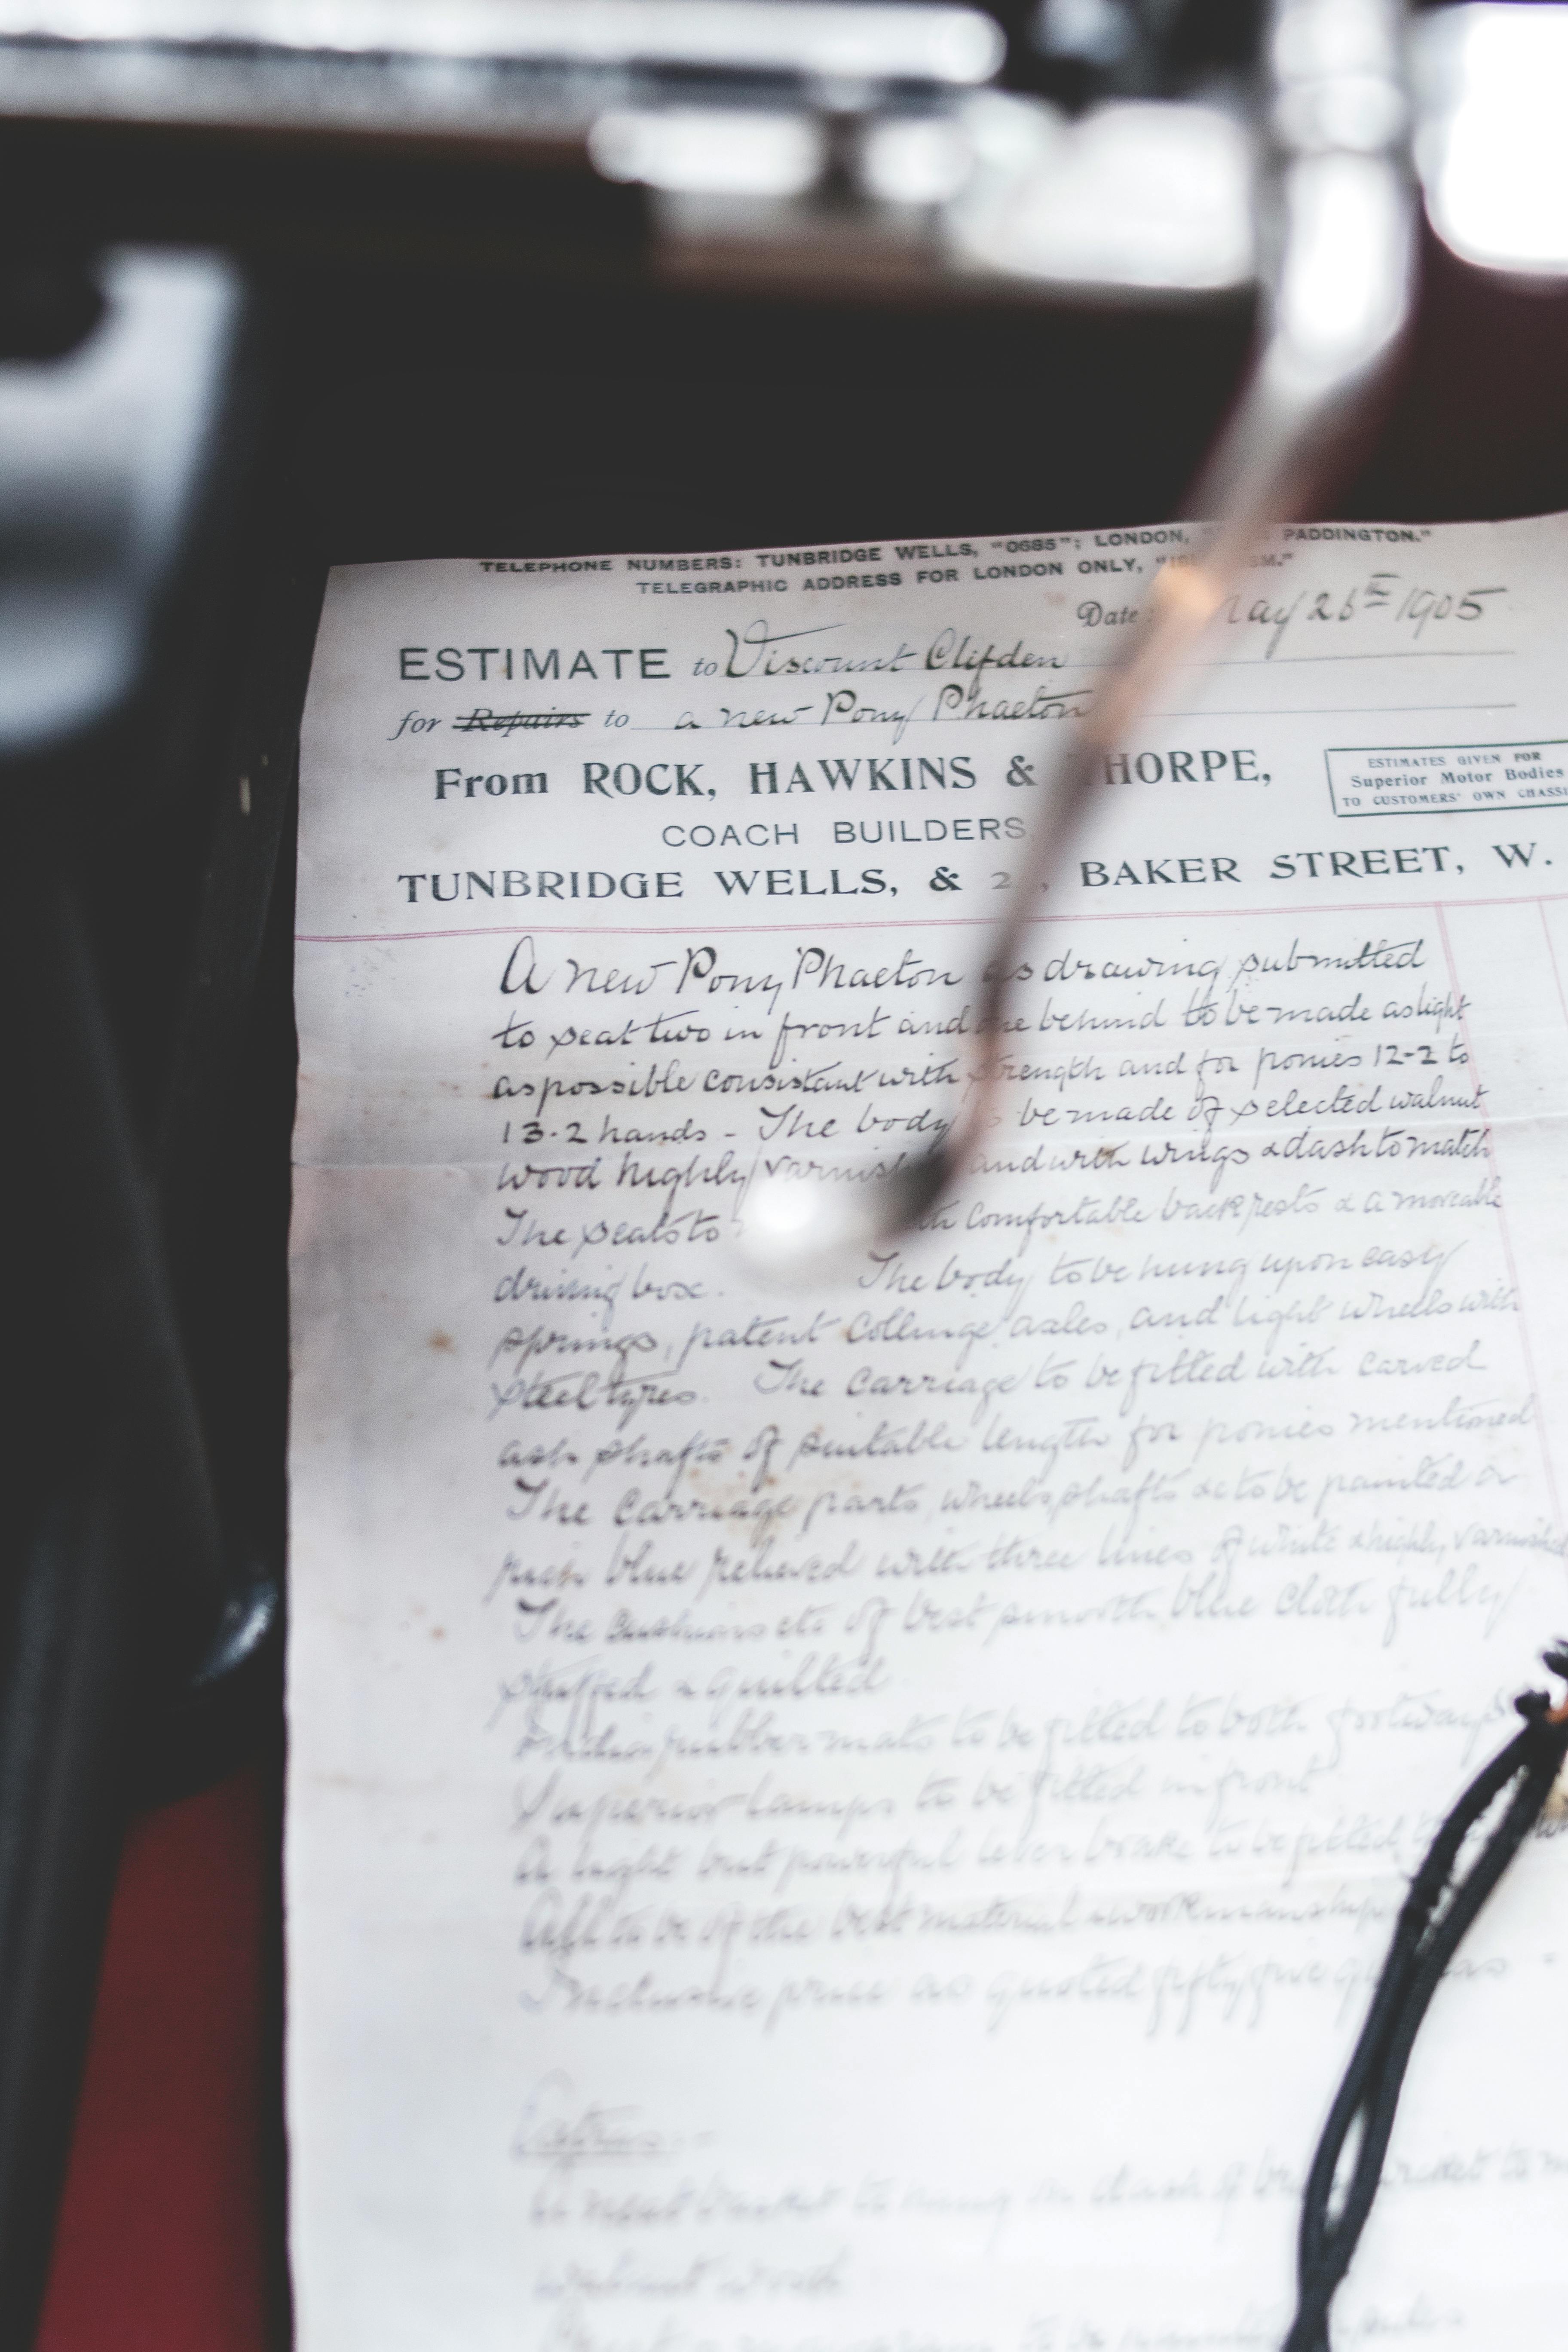 TELEPHONE NUMBERS: TUNBRIDGE WELLS, "0685"; LONDON, PADDINGTON."
TELEGRAPHIC ADDRESS FOR LONDON ONLY,
Date May 26th 1905
ESTIMATE to Viscount Clifden
for Repairs to a new Pony Phaeton
From ROCK, HAWKINS & THORPE,
ESTIMATES GIVEN FOR
Superior Motor Bodies
TO CUSTOMERS' OWN CHASSI
COACH BUILDERS
TUNBRIDGE WELLS, & BAKER STREET, W.
A new Pony Phaeton as drawing submitted
to seat two in front and one behind to be made as light
as possible consistant with strength and for ponies 12-2 to
13-2 hands - The body be made of selected walnut
wood highly varnish and with wings & dash to match
The seats to with comfortable back rests & a moveable
driving box. The body to be hung upon easy
springs, patent Collinge axles, and light wheels with
steel tyres. The Carriage to be fitted with carved
ash shafts of suitable length for ponies mentioned
The Carriage parts, wheels, shafts &c to be painted a
blue relieved with three lines of white & highly varnished
The cushions etc of best smooth blue cloth fully
stuffed & quilted
rubber mats to be fitted to both footways
Superior lamps to be fitted in front
A light but powerful lever brake to be fitted
All to be of the best material & workmanship
Inclusive price as quoted fifty five
Extras:-
A neat basket to hang on dash
walnut wood